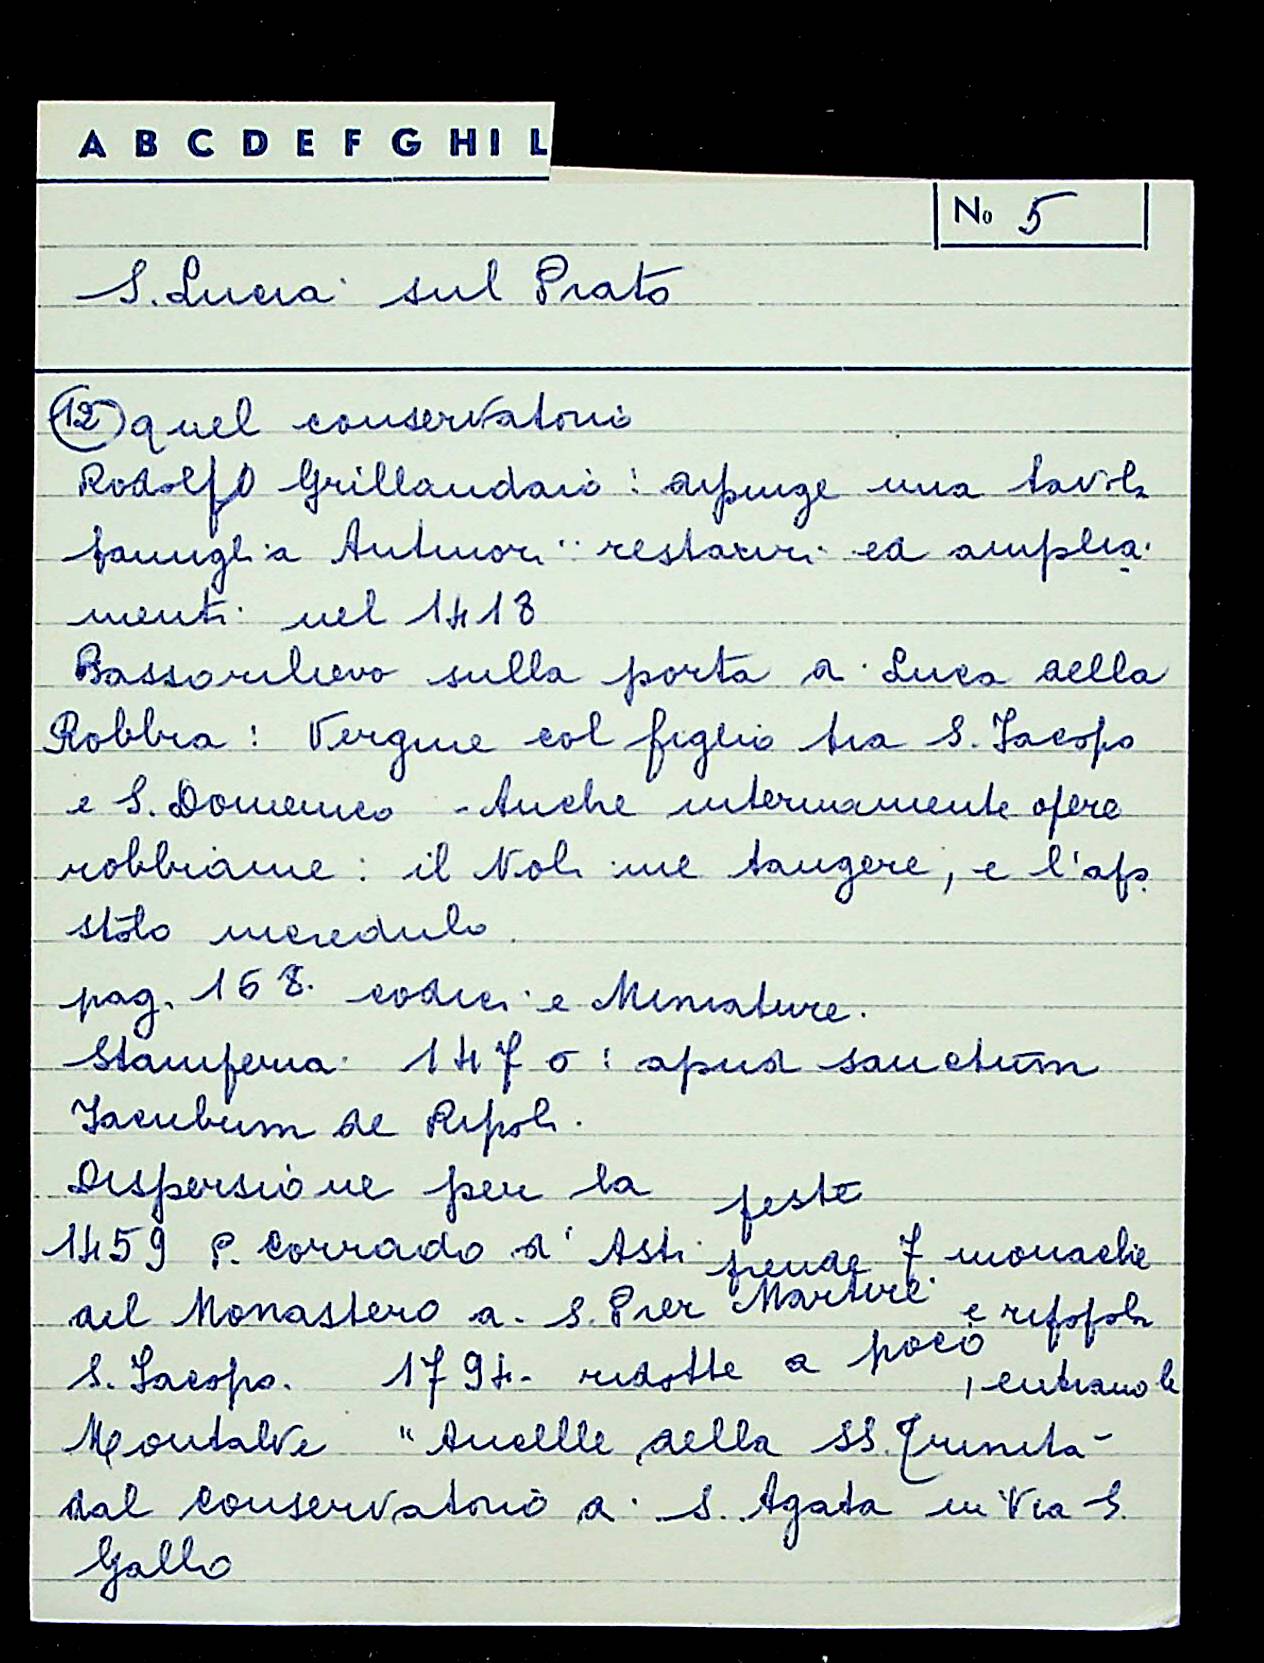 A B C D E F G H I L
No 5
S. Lucia sul Prato
12 quel conservatorio
Rodolfo Grillandaio: dipinge una tavola
famiglia Antinori: restauri ed amplia
menti nel 1418
Bassorilievo sulla porta di Luca della
Robbia: Vergine col figlio tra S. Jacopo
e S. Domenico - Anche internamente opere
robbiane: il Noli me tangere, e l'apo
stolo incredulo.
pag. 168. codici e Miniature.
Stamperia 1470: apud sanctum
Jacubum de Ripoli.
Dispersione per la peste
1459 P. Corrado d'Asti prende 7 monache
del Monastero di S. Pier Martire e ripopola
S. Jacopo. 1794- ridotte a poco, entrano le
Montalve "Ancelle della SS. Trinità-
dal conservatorio di S. Agata in Via S.
Gallo